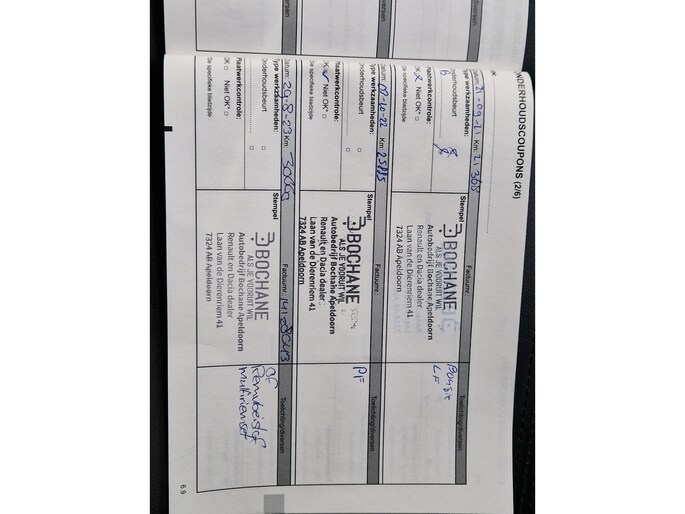 ONDERHOUDSCOUPONS (2/6)
Datum: 21-09-21 Km: 21 368
Type werkzaamheden:
Onderhoudsbeurt
Plaatwerkcontrole:
OK Niet OK* □
*Zie specifieke bladzijde
Stempel
BOCHANE
ALS JE VOORUIT WIL
Autobedrijf Bochane Apeldoorn
Renault en Dacia dealer
Laan van de Dierenriem 41
7324 AB Apeldoorn
Factuurnr.
Toelichting/diversen
LF
Datum: 07-10-22 Km: 25885
Type werkzaamheden:
Onderhoudsbeurt □
□
Plaatwerkcontrole:
OK Niet OK* □
*Zie specifieke bladzijde
Stempel
BOCHANE
ALS JE VOORUIT WIL
Autobedrijf Bochane Apeldoorn
Renault en Dacia dealer
Laan van de Dierenriem 41
7324 AB Apeldoorn
Factuurnr.
Toelichting/diversen
PF
Datum: 29-8-23 Km:
Type werkzaamheden:
Onderhoudsbeurt □
□
Plaatwerkcontrole:
OK □ Niet OK* □
*Zie specifieke bladzijde
Stempel
BOCHANE
ALS JE VOORUIT WIL
Autobedrijf Bochane Apeldoorn
Renault en Dacia dealer
Laan van de Dierenriem 41
7324 AB Apeldoorn
Factuurnr.
Toelichting/diversen
Multiriemset
6.9